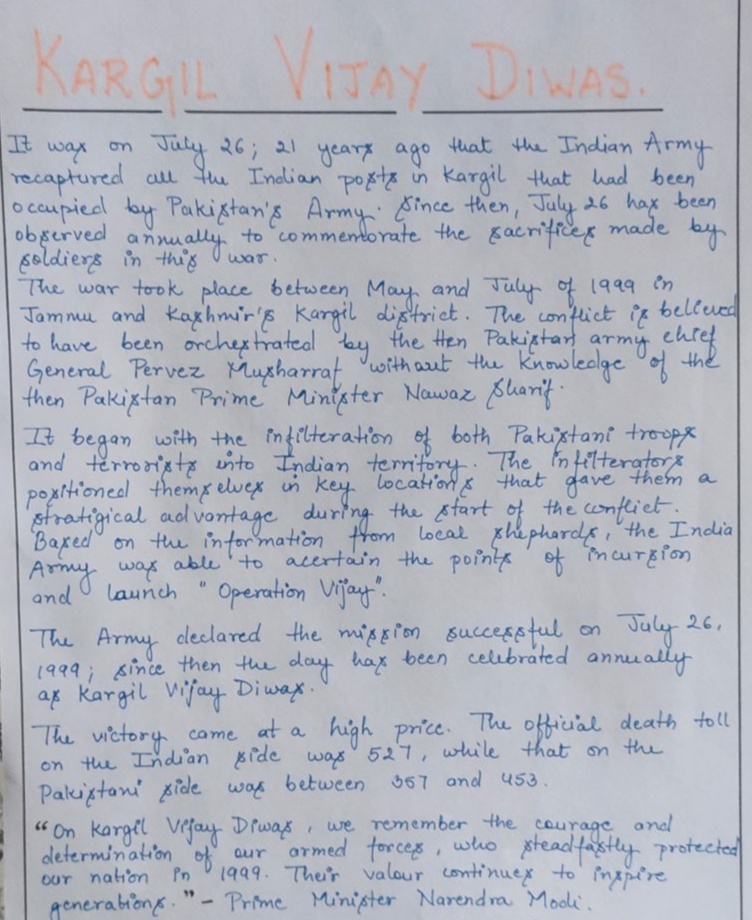 KARGIL VIJAY DIWAS.
It was on July 26; 21 years ago that the Indian Army
recaptured all the Indian posts in Kargil that had been
occupied by Pakistan's Army. Since then, July 26 has been
observed annually to commemborate the sacrifices made by
soldiers in this war.
The war took place between May and July of 1999 in
Jammu and Kashmir's Kargil district. The conflict is believed
to have been orchestrated by the then Pakistan army chief
General Pervez Musharraf without the knowledge of the
then Pakistan Prime Minister Nawaz Sharif.
It began with the infilteration of both Pakistani troops
and terrorists into Indian territory. The infilterators
positioned themselves in key locations that gave them a
stratigical advantage during the start of the conflict.
Based on the information from local shephards, the India
Army was able to acertain the points of incursion
and launch "Operation Vijay".
The Army declared the mission successful on July 26,
1999; since then the day has been celebrated annually
as Kargil Vijay Diwas.
The victory came at a high price. The official death toll
on the Indian side was 527, while that on the
Pakistani side was between 357 and 453.
"On Kargil Vijay Diwas, we remember the courage and
determination of our armed forces, who steadfastly protected
our nation in 1999. Their valour continues to inspire
generations." - Prime Minister Narendra Modi.